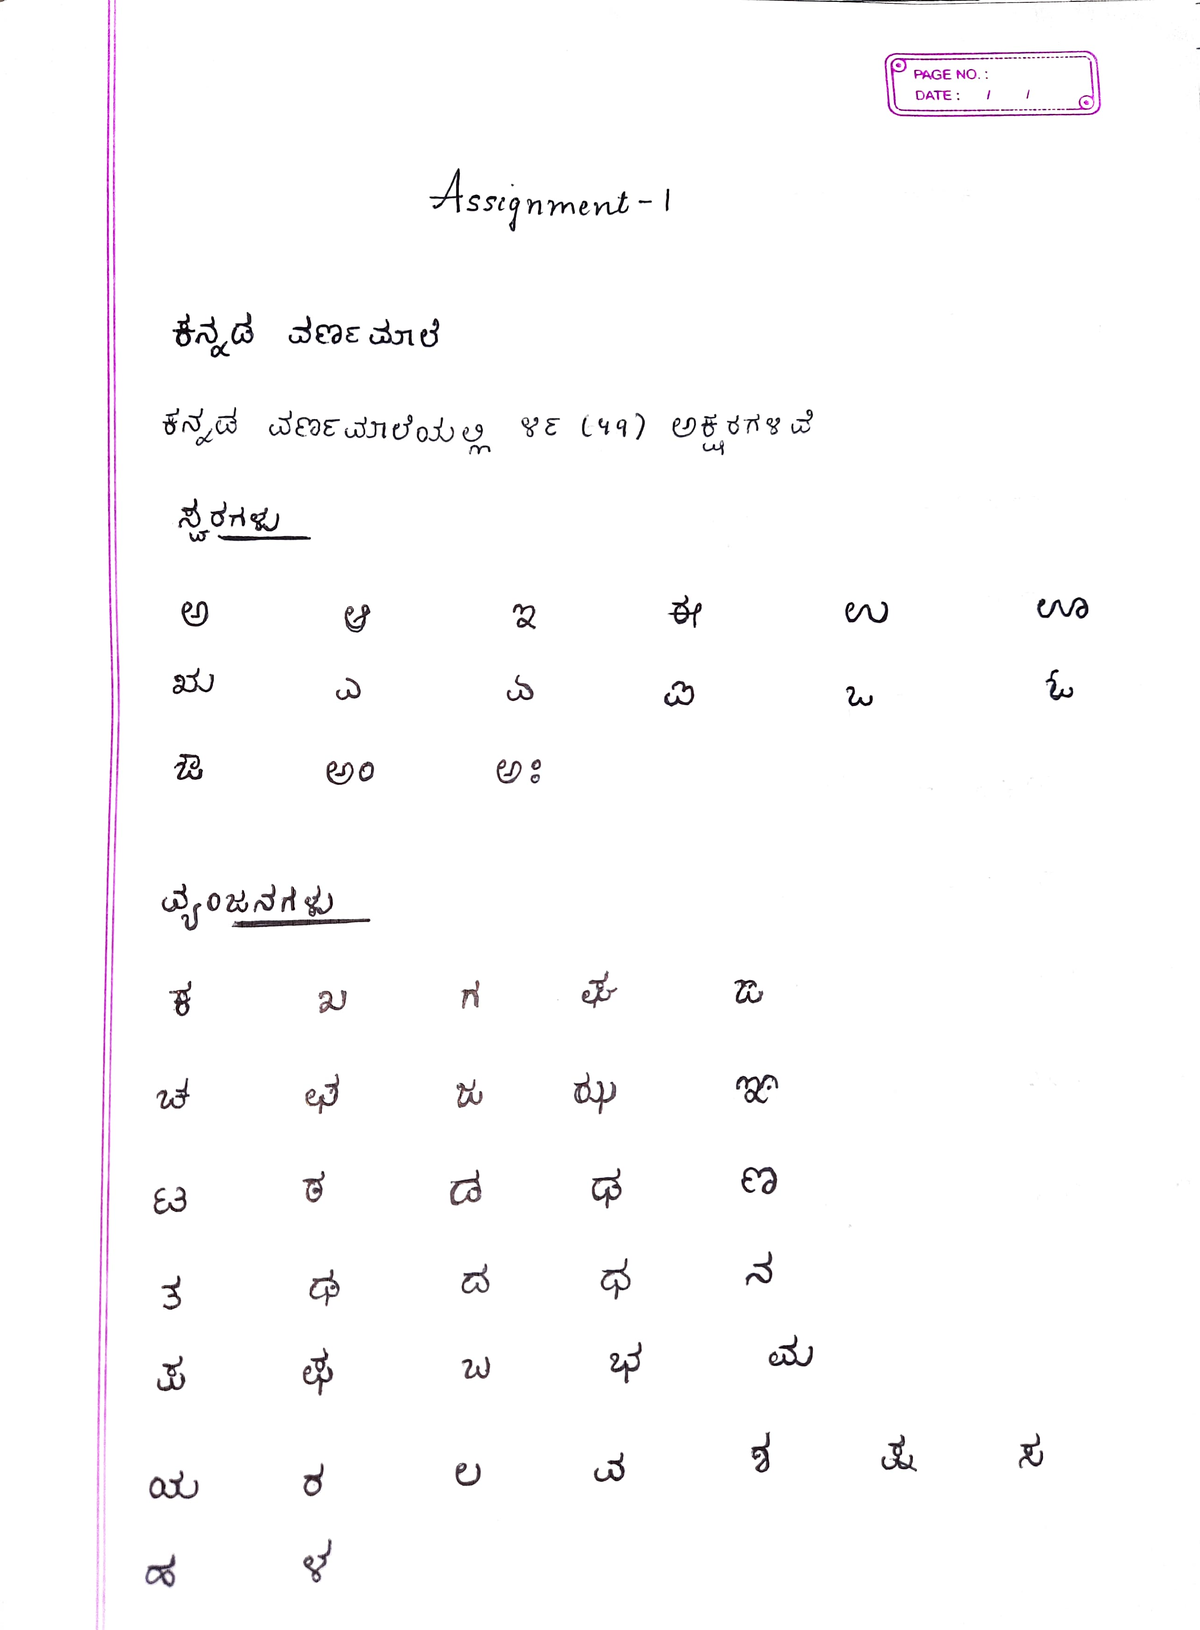 PAGE NO. :
DATE : / /
Assignment - 1
ಕನ್ನಡ ವರ್ಣಮಾಲೆ
ಕನ್ನಡ ವರ್ಣಮಾಲೆಯಲ್ಲಿ ೪೯ (49) ಅಕ್ಷರಗಳಿವೆ
ಸ್ವರಗಳು
ಅ ಆ ಇ ಈ ಉ ಊ
ಋ ಎ ಏ ಐ ಒ ಓ
ಔ ಅಂ ಅಃ
ವ್ಯಂಜನಗಳು
ಕ ಖ ಗ ಘ ಙ
ಚ ಛ ಜ ಝ ಞ
ಟ ಠ ಡ ಢ ಣ
ತ ಥ ದ ಧ ನ
ಪ ಫ ಬ ಭ ಮ
ಯ ರ ಲ ವ ಶ ಷ ಸ
ಹ ಳ